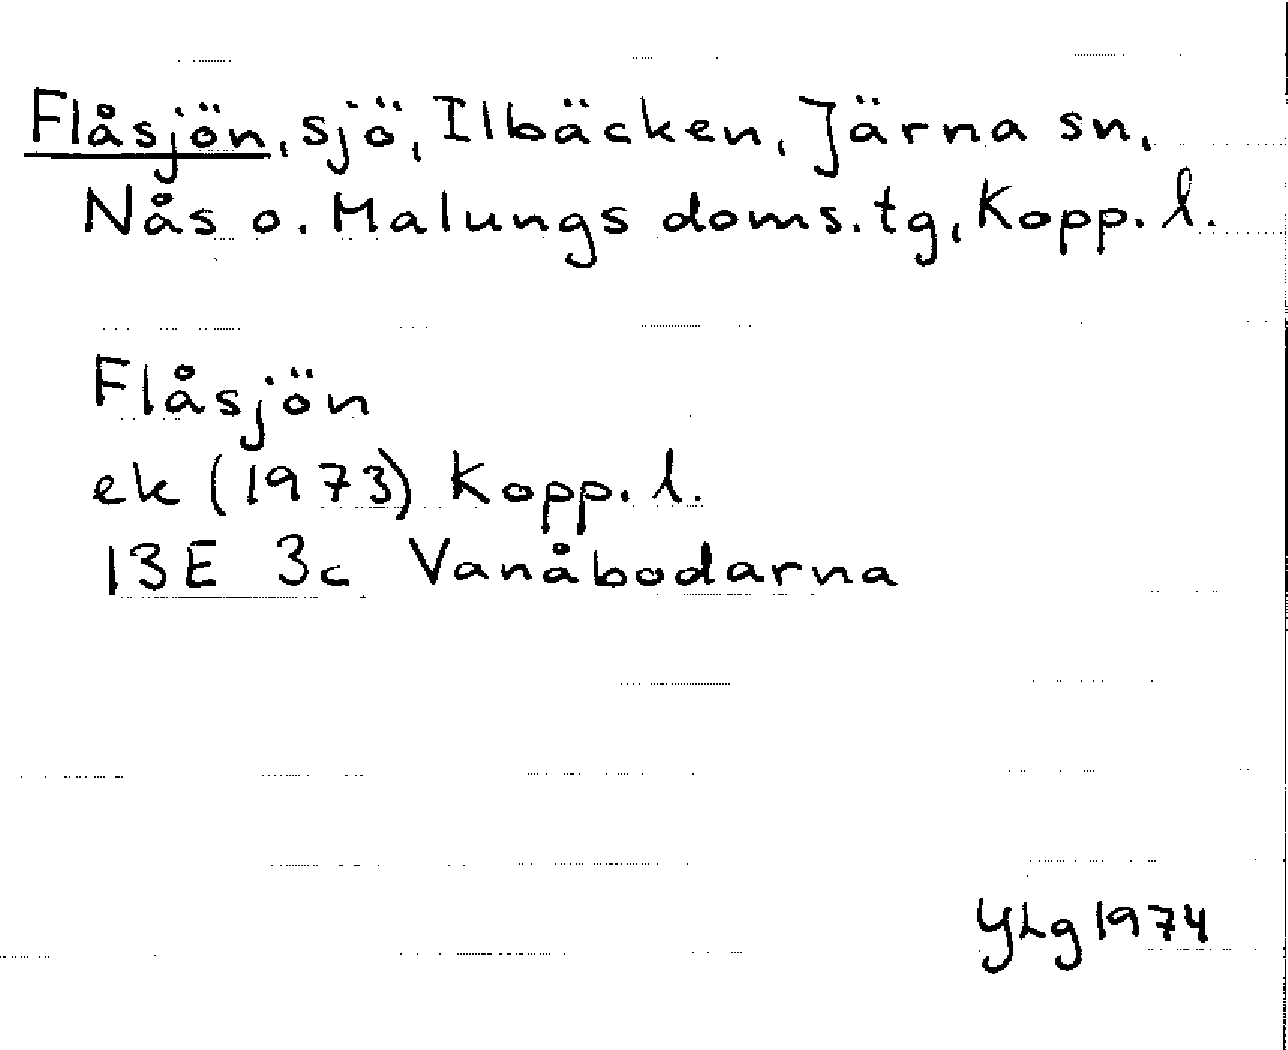 Flåsjön, sjö, Ilbäcken, Järna sn,
Nås o. Malungs doms.tg, Kopp. l.
Flåsjön
ek (1973) Kopp. l.
13E 3c Vanåbodarna
YLg 1974